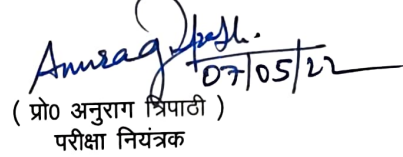 Anurag
07/05/22
( प्रो0 अनुराग त्रिपाठी )
परीक्षा नियंत्रक